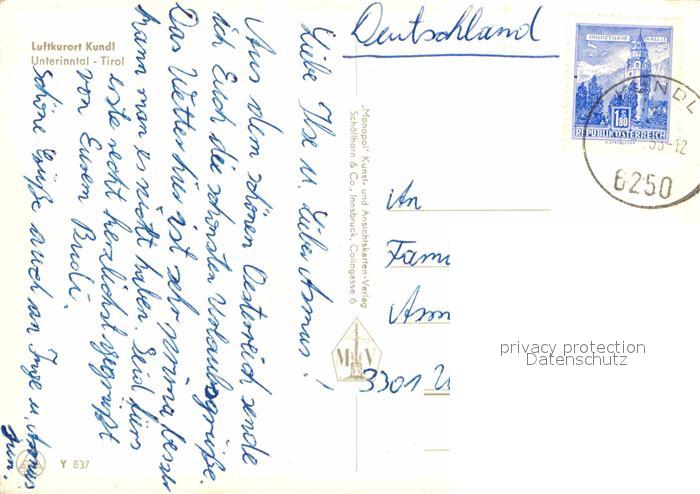 Luftkurort Kundl
Unterinntal - Tirol
Liebe Ilse u. Lieber Asmus!
Aus dem schönen Oesterreich sende
ich Euch die schönsten Urlaubsgrüße.
Das Wetter hier ist sehr prima, besser
kann man es nicht haben. Seid fürs
erste recht herzlichst gegrüßt
von Eurem Budi.
schöne Grüße auch an Inge u. Asmus
jun.
Y 837
„Monopol" Kunst- und Ansichtskarten-Verlag
Schöllhorn & Co., Innsbruck, Colingasse 6
M V
Deutschland
MÜNZTURM HALL I.T.
S 1.80
REPUBLIK ÖSTERREICH
KUNDL
-12
6250
An
Fami
Asm
3301
privacy protection
Datenschutz